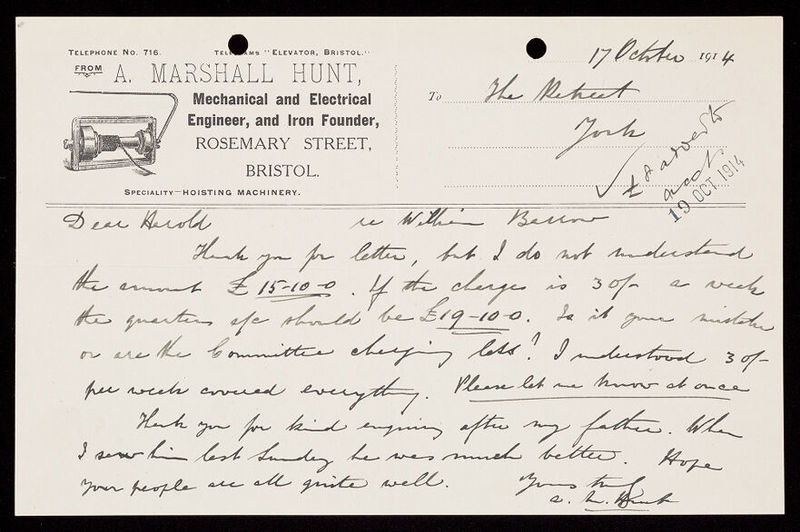 TELEPHONE No. 716. TELEGRAMS "ELEVATOR, BRISTOL."
FROM
A. MARSHALL HUNT,
Mechanical and Electrical
Engineer, and Iron Founder,
ROSEMARY STREET,
BRISTOL.
SPECIALITY—HOISTING MACHINERY.
17 October 1914
To The Retreat
York
19 OCT. 1914
Dear Harold re William Barrow
Thank you for letter, but I do not understand
the amount £15-10-0. If the charges is 30/- a week
the quarters a/c should be £19-10-0. Is it your mistake
or are the Committee charging less? I understood 30/-
per week covered everything. Please let me know at once
Thank you for kind enquiry after my father. When
I saw him last Sunday he was much better. Hope
your people are all quite well. Yours truly
A. M. Hunt